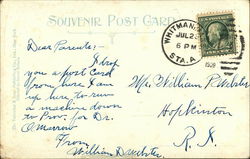 SOUVENIR POST CARD
WHITMAN,
JUL 25
6 PM
STA. A.
1909
Dear Parents:-
I drop
you a post Card
from here I am
up here to run
a machine down
to Prov. for Dr.
O'Marrow
From
William D. Webster
Mr. William P. Webster
Hopkinton
R. I.